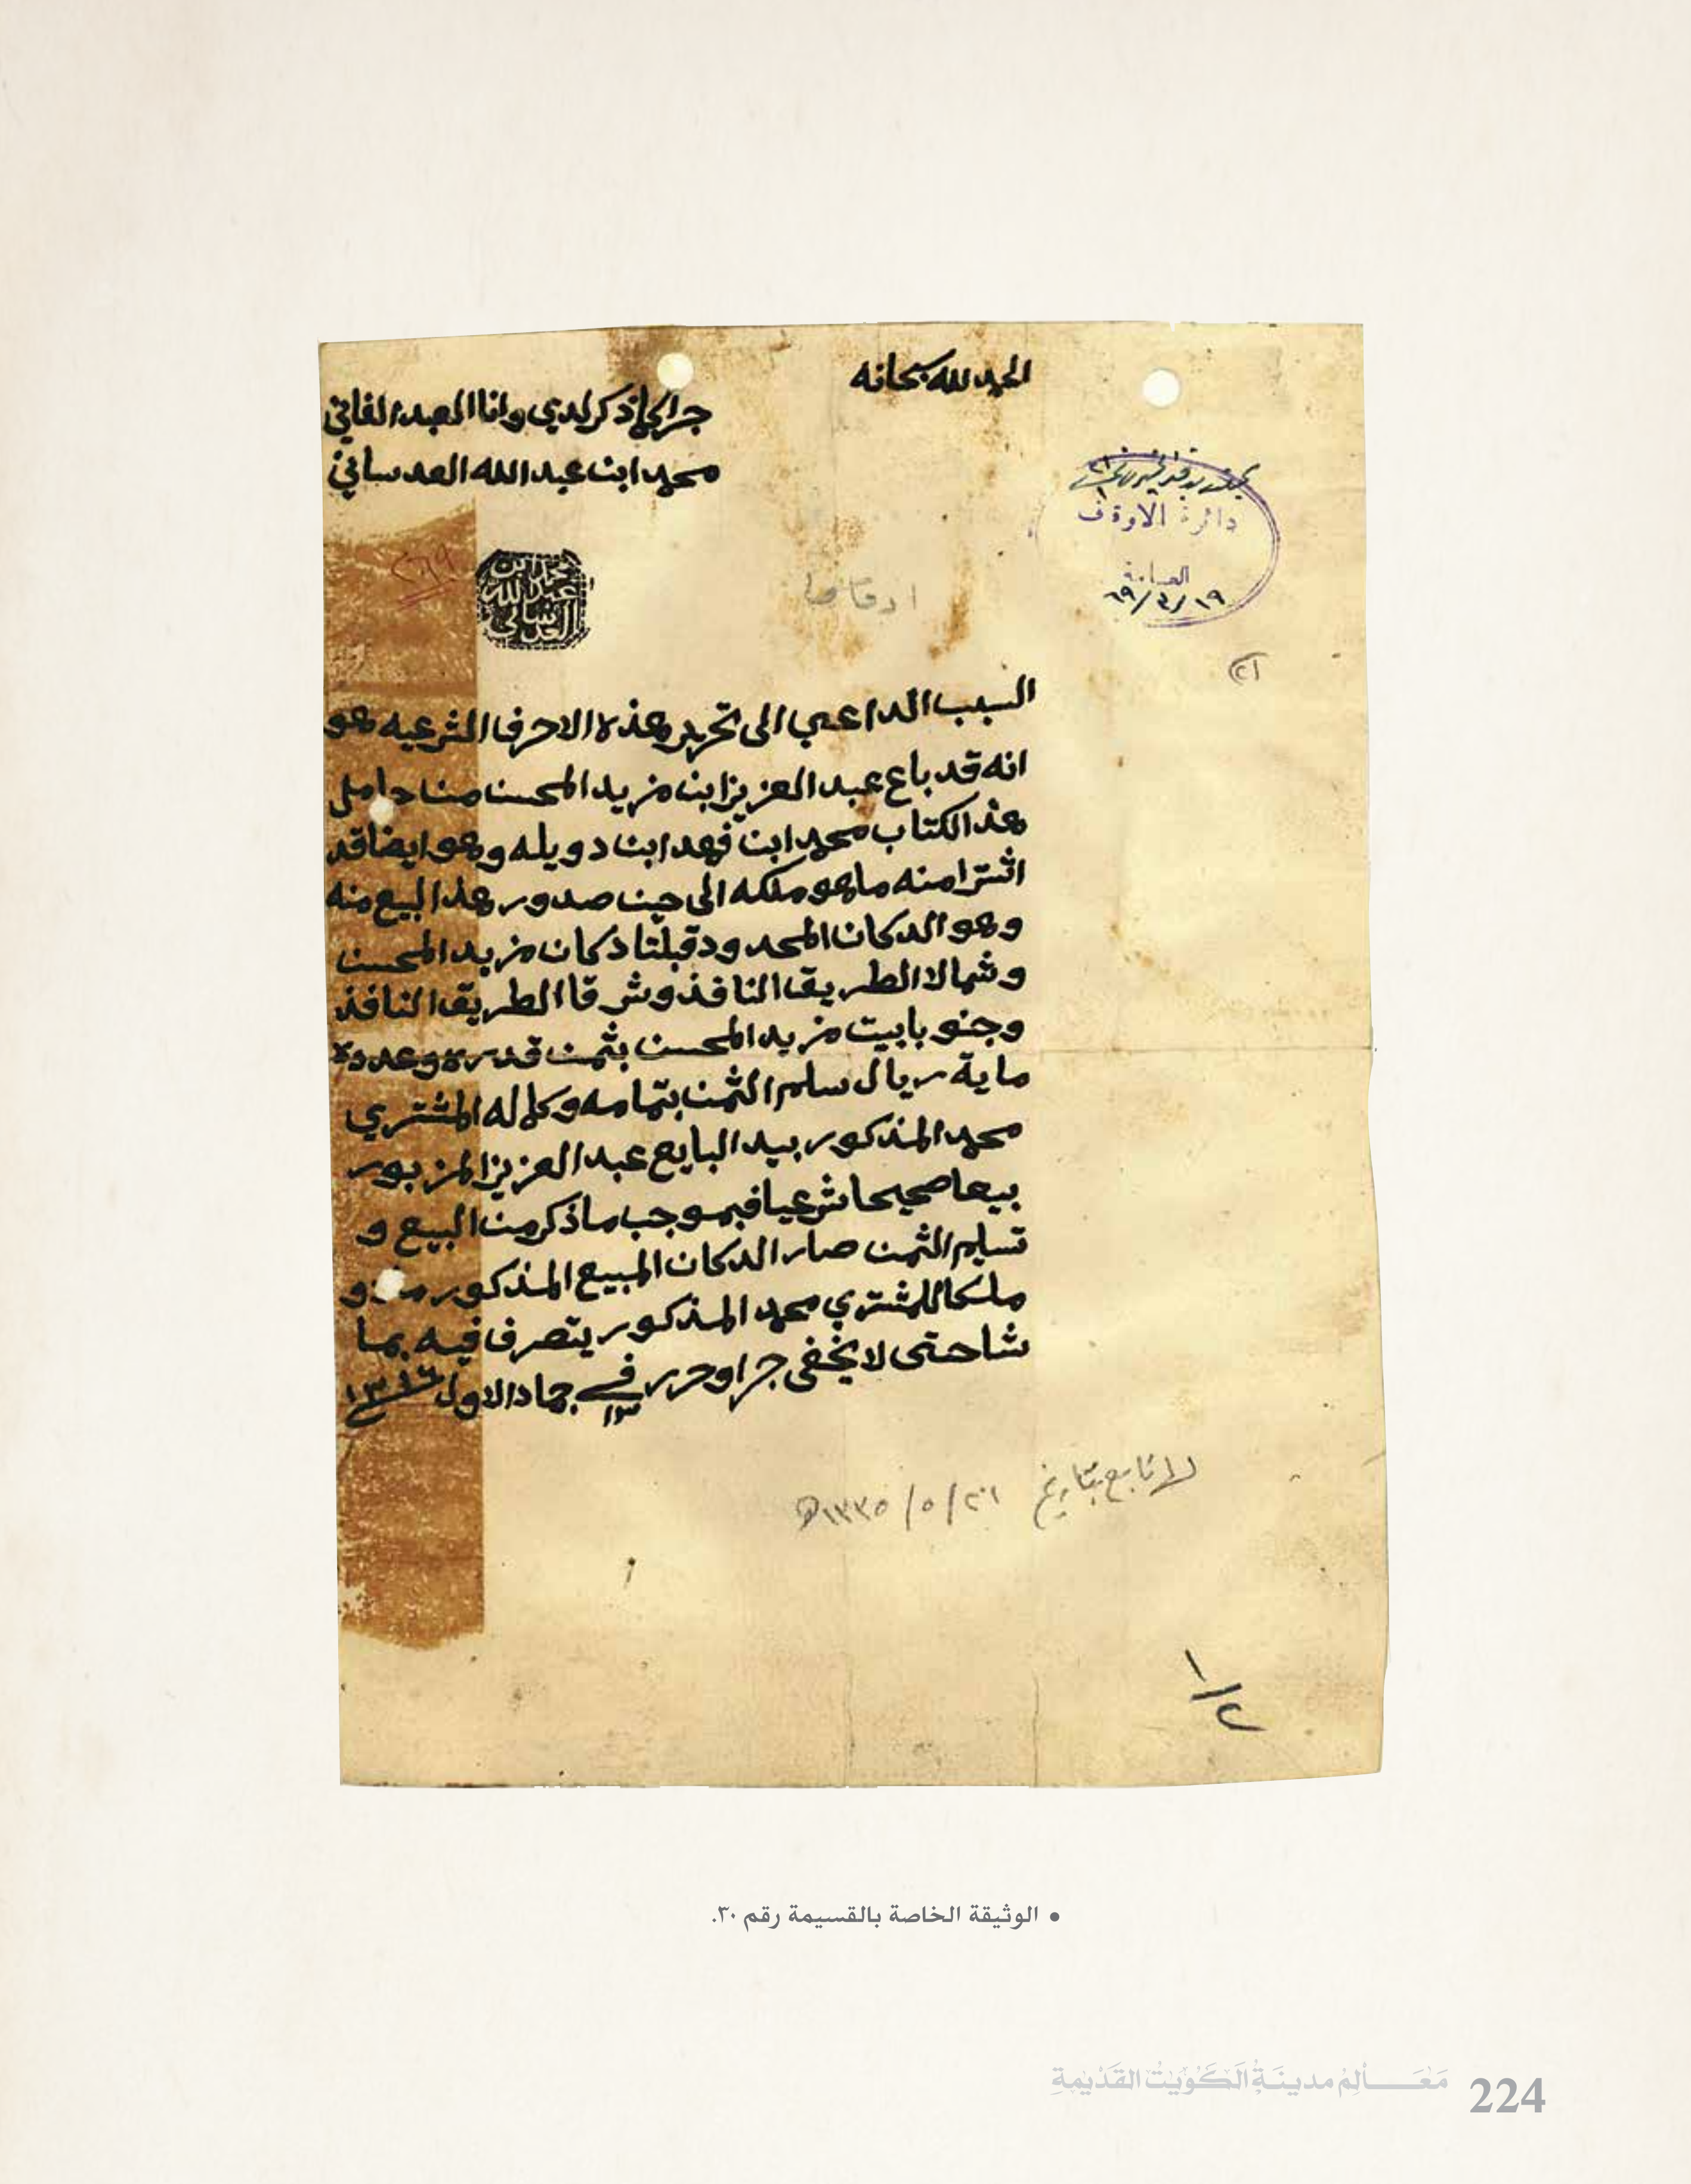 الحمد لله سبحانه
جرا كما ذكر لدي وانا العبد الفاني
محمد ابن عبد الله العدساني
دائرة الاوقاف
العامة
١٩/٣/٦٩
٢٦٩
محمد ابن
عبد الله
العدساني
(٢١
السبب الداعي الى تحرير هذه الاحرف الشرعيه هو
انه قد باع عبد العزيز ابن مزيد المحسن من حامل
هذ الكتاب محمد ابن فهد ابن دويله وهو ايضا قد
اشترا منه ما هو ملكه الى حين صدور هذ البيع منه
وهو الدكان المحدود قبلتا دكان مزيد المحسن
وشمالا الطريق النافذ وشرقا الطريق النافذ
وجنوبا بيت مزيد المحسن بثمن قدره وعدده
ماية ريال سلم الثمن بتمامه وكماله المشتري
محمد المذكور بيد البايع عبد العزيز المزبور
بيعا صحيحا شرعيا فبموجب ما ذكر من البيع و
تسليم الثمن صار الدكان المبيع المذكور و
ملكا للمشتري محمد المذكور يتصرف فيه بما
شا حتى لا يخفى جرا وحرر في ١٣ جماد الاول ١٣١٦
تابع بتاريخ ٢٦/٥/١٣٣٥هـ
١/٢
• الوثيقة الخاصة بالقسيمة رقم ٣٠.
مَعَالِمُ مدينَةِ الكُوَيْتِ القَدْيمَةِ 224